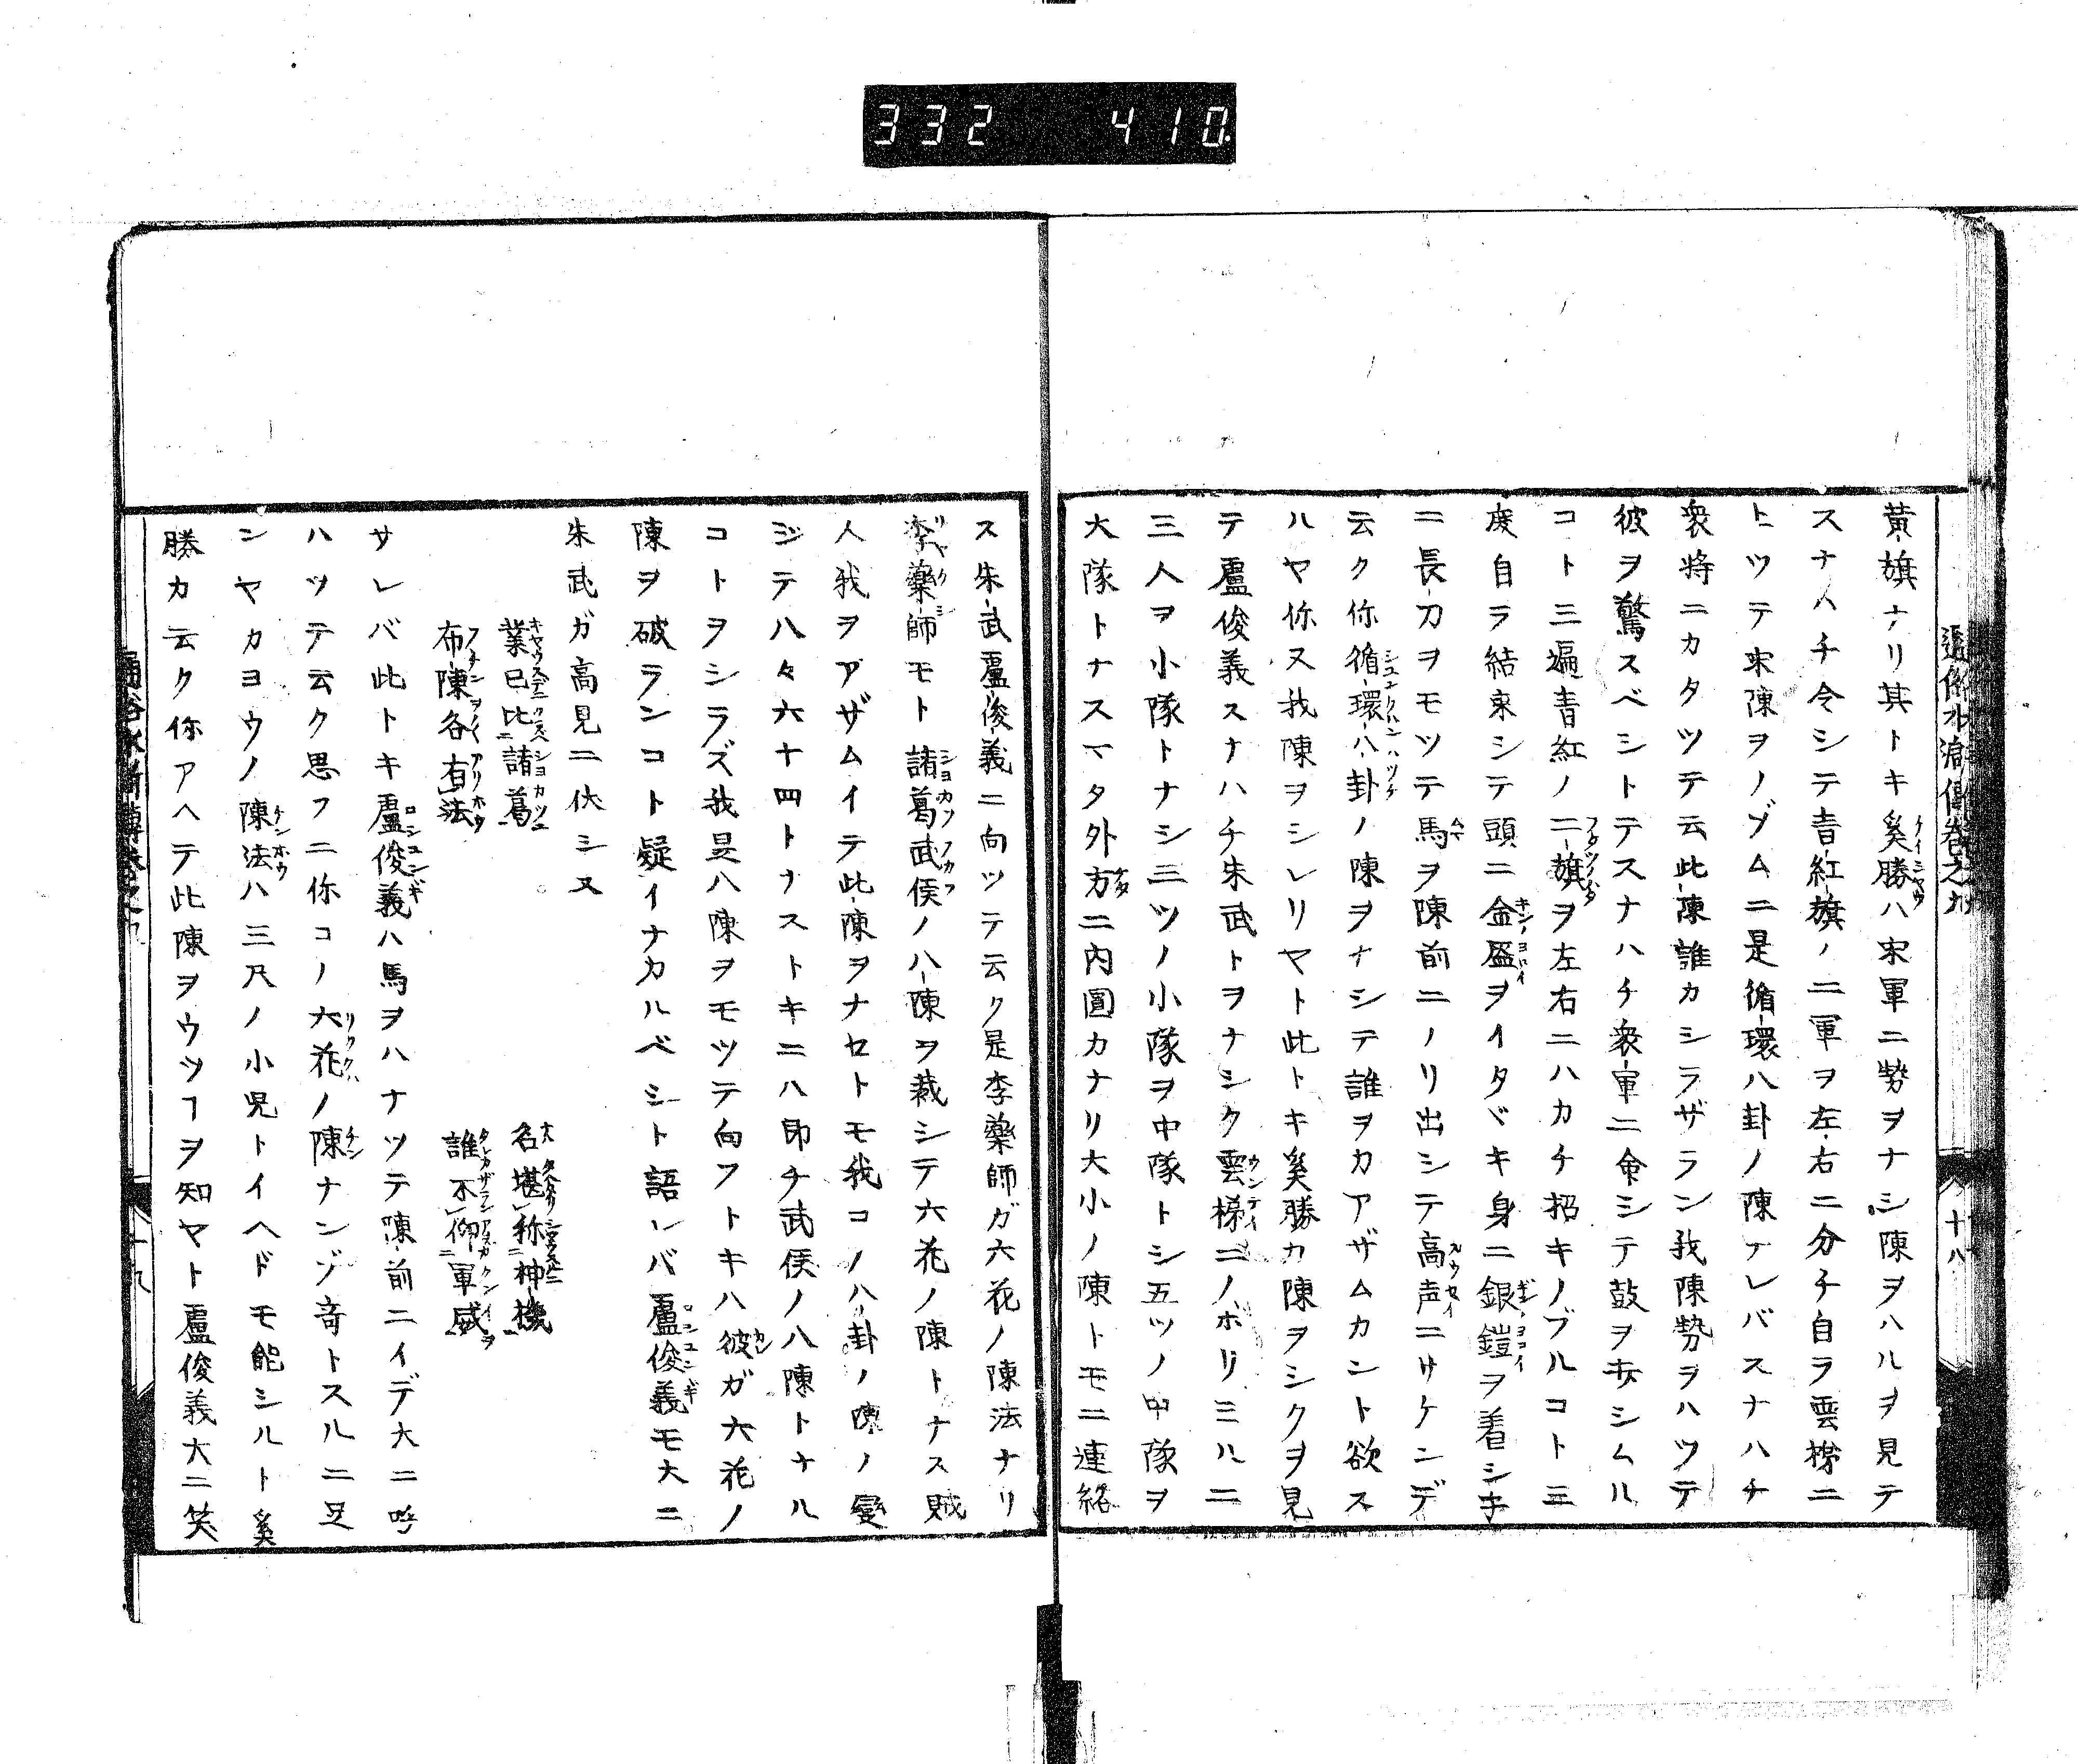 332 410
通俗水滸傳卷之
十八
黃旗ナリ其トキ奚勝ハ宋軍ニ勢ヲナシ陳ヲハルヲ見テ
スナハチ令シテ青紅旗ノ二軍ヲ左右ニ分チ自ラ雲梯ニ
トツテ宋陳ヲノゾムニ是循環八卦ノ陳ナレバスナハチ
衆將ニカタツテ云此陳誰カシラザラン我陳勢ヲハツテ
彼ヲ驚スベシトテスナハチ衆軍ニ命シテ鼓ヲ
コト三遍青紅ノ二旗ヲ左右ニハカチ招キノブルコト三
度自ラ結束シテ頭ニ金盔ヲイタヾキ身ニ銀鎧ヲ着シ手
ニ長刀ヲモツテ馬ヲ陳前ニノリ出シテ高声ニサケンデ
云ク你循環八卦ノ陳ヲナシテ誰ヲカアザムカント欲ス
ハヤ你又我陳ヲシレリヤト此トキ奚勝カ陳ヲシクヲ見
テ盧俊義スナハチ朱武トヲナシク雲梯ニノボリミルニ
三人ヲ小隊トナシ三ツノ小隊ヲ中隊トシ五ツノ中隊ヲ
大隊トナスマタ外方ニ内圓カナリ大小ノ陳トモニ連絡
ス朱武盧俊義ニ向ツテ云ク是李藥師ガ六花ノ陳法ナリ
李藥師モト諸葛武侯ノ八陳ヲ裁シテ六花ノ陳トナス賊
人我ヲアザムイテ此陳ヲナセトモ我コノ八卦ノ陳ノ變
ジテ八々六十四トナストキニハ即チ武侯ノ八陳トナル
コトヲシラズ我是ハ陳ヲモツテ向フトキハ彼ガ六花ノ
陳ヲ破ランコト疑イナカルベシト語レバ盧俊義モ大ニ
朱武ガ高見ニ伏シヌ
業已比諸葛 名堪称神機
布陳各有法 誰不仰軍威
サレバ此トキ盧俊義ハ馬ヲハナツテ陳前ニイデ大ニ呼
ハツテ云ク思フニ你コノ六花ノ陳ナンゾ奇トスルニ足
ンヤカヨウノ陳法ハ三尺ノ小児トイヘドモ能シルト奚
勝カ云ク你アヘテ此陳ヲウツヿヲ知ヤト盧俊義大ニ笑